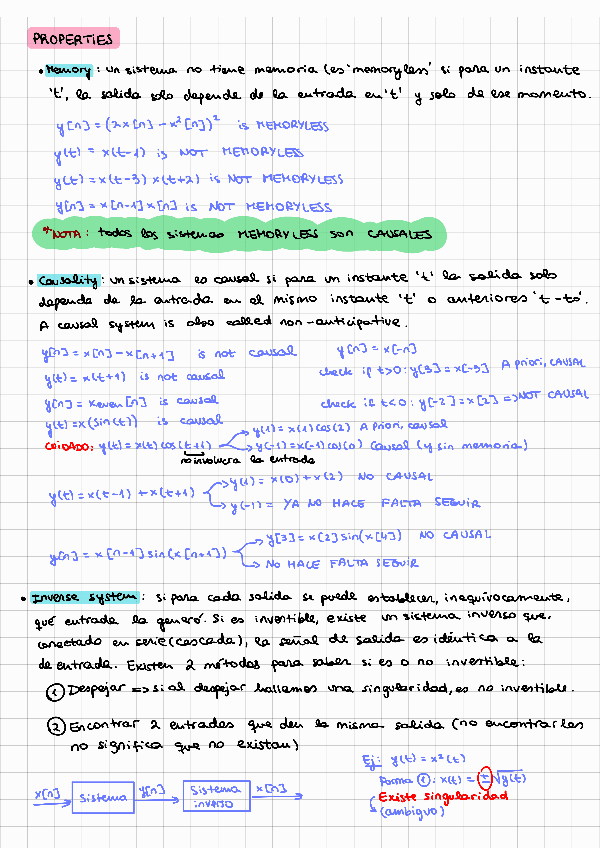 PROPERTIES
• Memory: un sistema no tiene memoria (es 'memoryless' si para un instante
't', la salida solo depende de la entrada en 't' y solo de ese momento.
y[n] = (2x[n] - x²[n])² is MEMORYLESS
y(t) = x(t-1) is NOT MEMORYLESS
y(t) = x(t-3) x(t+2) is NOT MEMORYLESS
y[n] = x[n-1] x[n] is NOT MEMORYLESS
*NOTA: todos los sistemas MEMORYLESS son CAUSALES
• Causality: un sistema es causal si para un instante 't' la salida solo
depende de la entrada en el mismo instante 't' o anteriores 't-to'.
A causal system is also called non-anticipative.
y[n] = x[n] - x[n+1] is not causal
y[n] = x[-n]
y(t) = x(t+1) is not causal
check if t>0: y[3] = x[-3] A priori, CAUSAL
y[n] = xeven[n] is causal
check if t<0: y[-2] = x[2] => NOT CAUSAL
y(t) = x(sin(t)) is causal
CUIDADO: y(t) = x(t) cos(t+1)
y(1) = x(1) cos(2) A priori, causal
y(-1) = x(-1) cos(0) Causal (y sin memoria)
no involucra la entrada
y(t) = x(t-1) + x(t+1)
y(1) = x(0) + x(2) NO CAUSAL
y(-1) = YA NO HACE FALTA SEGUIR
y[n] = x[n-1] sin(x[n+1])
y[3] = x[2] sin(x[4]) NO CAUSAL
NO HACE FALTA SEGUIR
• Inverse system: si para cada salida se puede establecer, inequívocamente,
qué entrada la generó. Si es invertible, existe un sistema inverso que,
conectado en serie (cascada), la señal de salida es idéntica a la
de entrada. Existen 2 métodos para saber si es o no invertible:
① Despejar => si al despejar hallamos una singularidad, es no invertible.
② Encontrar 2 entradas que den la misma salida (no encontrarlas
no significa que no existan)
Ej: y(t) = x²(t)
Forma ①: x(t) = ±√y(t)
Existe singularidad
(ambiguo)
x[n] Sistema y[n] Sistema inverso x[n]